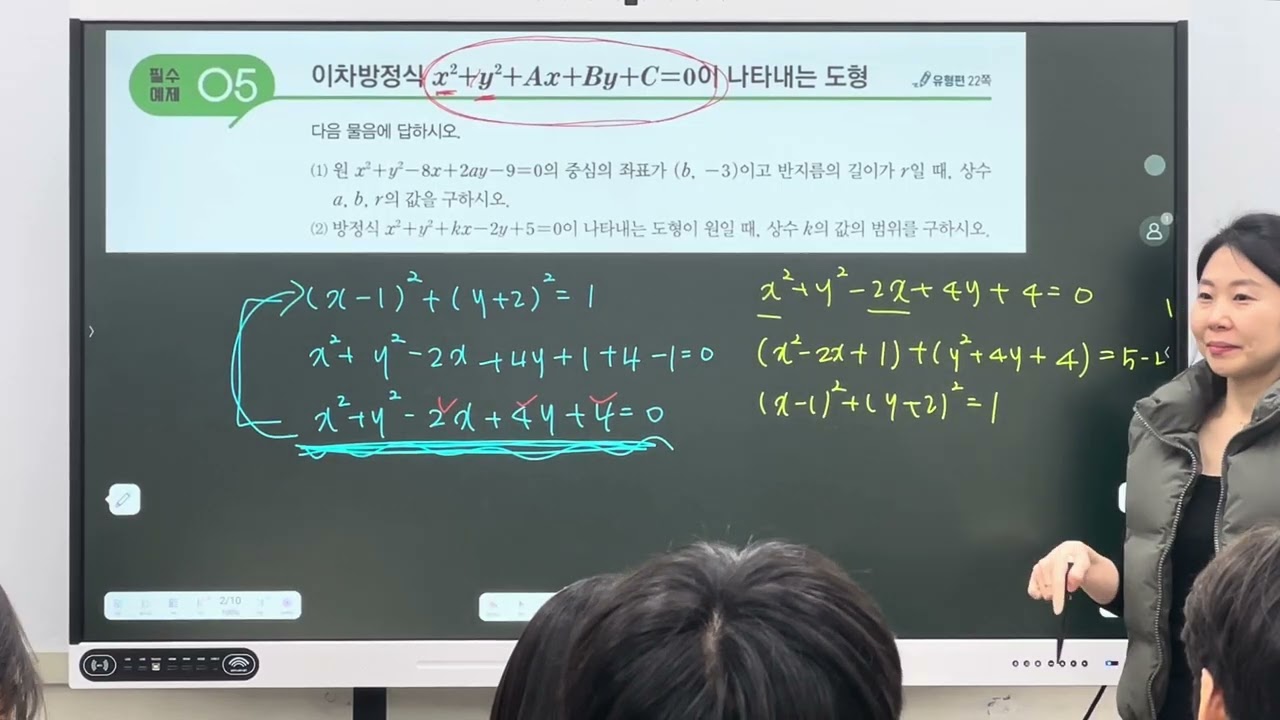 필수
예제
05
이차방정식 x²+y²+Ax+By+C=0이 나타내는 도형
유형편 22쪽
다음 물음에 답하시오.
(1) 원 x²+y²-8x+2ay-9=0의 중심의 좌표가 (b, -3)이고 반지름의 길이가 r일 때, 상수
a, b, r의 값을 구하시오.
(2) 방정식 x²+y²+kx-2y+5=0이 나타내는 도형이 원일 때, 상수 k의 값의 범위를 구하시오.
(x-1)²+(y+2)²=1
x²+y²-2x+4y+1+4-1=0
x²+y²-2x+4y+4=0
x²+y²-2x+4y+4=0
(x²-2x+1)+(y²+4y+4)=5-4
(x-1)²+(y+2)²=1
2/10
100%
1